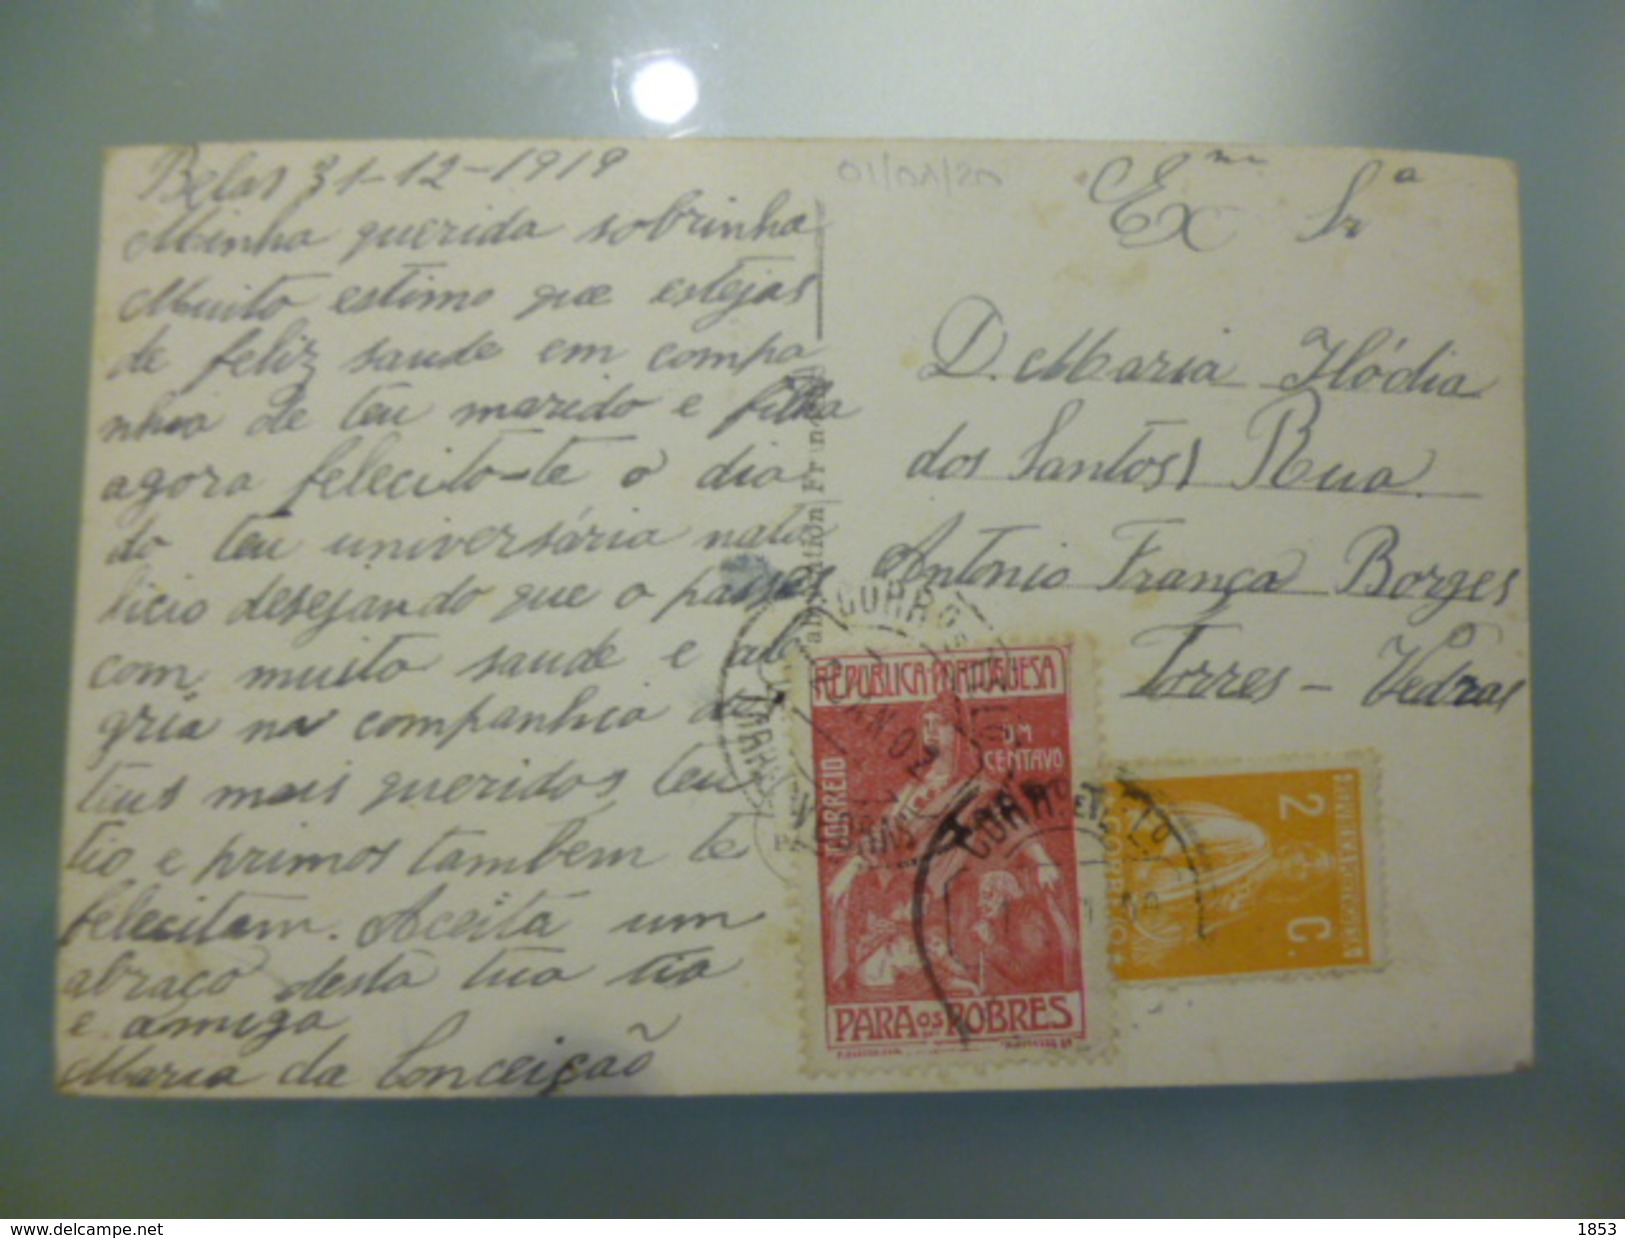 Belas 31-12-1919
Minha querida sobrinha
Muito estimo que estejas
de feliz saude em compa
nhia de teu marido e filha
agora felecito-te o dia
do teu universária nata
licio desejando que o passes
com muita saude e ale
gria na companhia de
teus mais queridos teu
tio e primos tambem te
felecitam. Aceita um
abraço desta tua tia
e amiga
Maria da Conceição
01/01/20
Exma Sra
D. Maria Ilódia
dos Santos Rua
Antonio França Borges
Torres-Vedras
REPUBLICA PORTUGUESA
UM
CENTAVO
CORREIO
PARA OS POBRES
2 C.
CORREIO
www.delcampe.net
1853